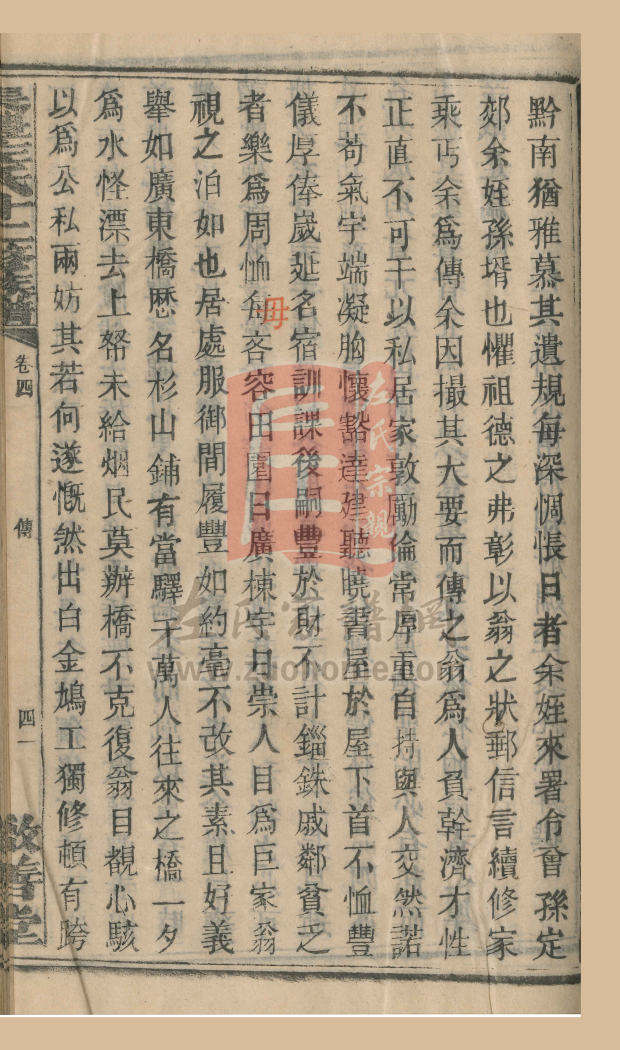 黔南猶雅慕其遺規每深惆悵日者余姪來署令曾孫定
郊余姪孫壻也懼祖德之弗彰以翁之狀郵信言續修家
乘丐余為傳余因撮其大要而傳之翁為人負幹濟才性
正直不可干以私居家敦勵倫常厚重自持與人交然諾
不苟氣宇端凝胸懷豁達建聽曉書屋於屋下首不恤豐
儀厚俸歲延名宿訓課後嗣豐於財不計錙銖戚鄰貧乏
者樂為周恤每吝容田園日廣棟宇日崇人目為巨家翁
毋
視之泊如也居處服御間履豐如約毫不改其素且好義
舉如廣東橋歴名杉山鋪有當驛千萬人往來之橋一夕
為水怪漂去上帑未給烟民莫辦橋不克復翁目覩心駭
以為公私兩妨其若何遂慨然出白金鳩工獨修頓有跨
氏十二修族譜
卷四
傳
四一
敬善堂
左氏宗親
左氏家譜網
www.zuohome.com